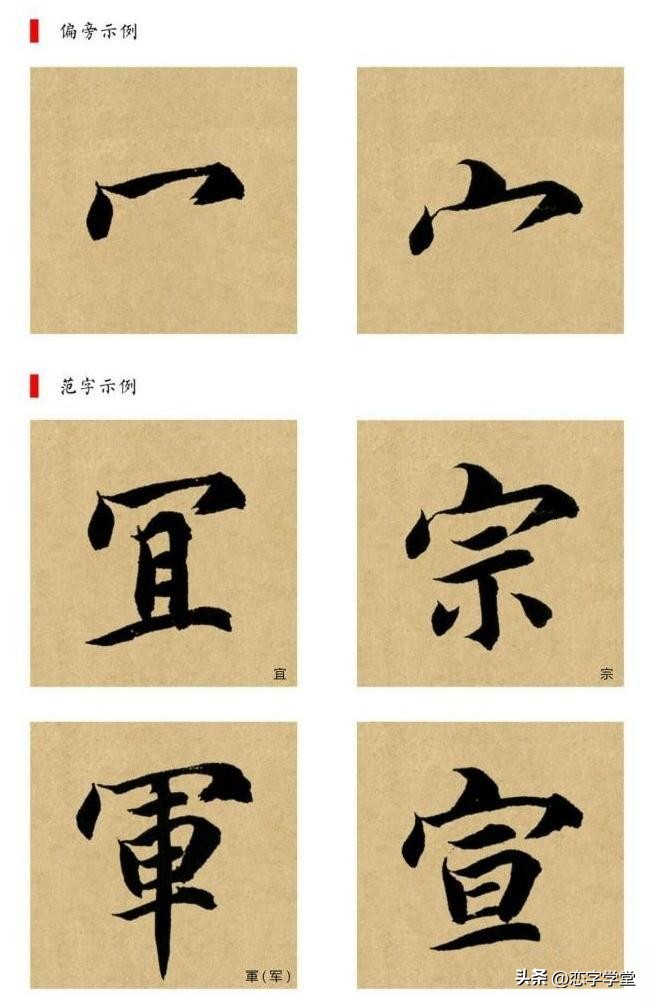 偏旁示例
冖 宀
范字示例
冝 宗
宜 宗
軍 宣
軍(军)
头条 @恋字学堂